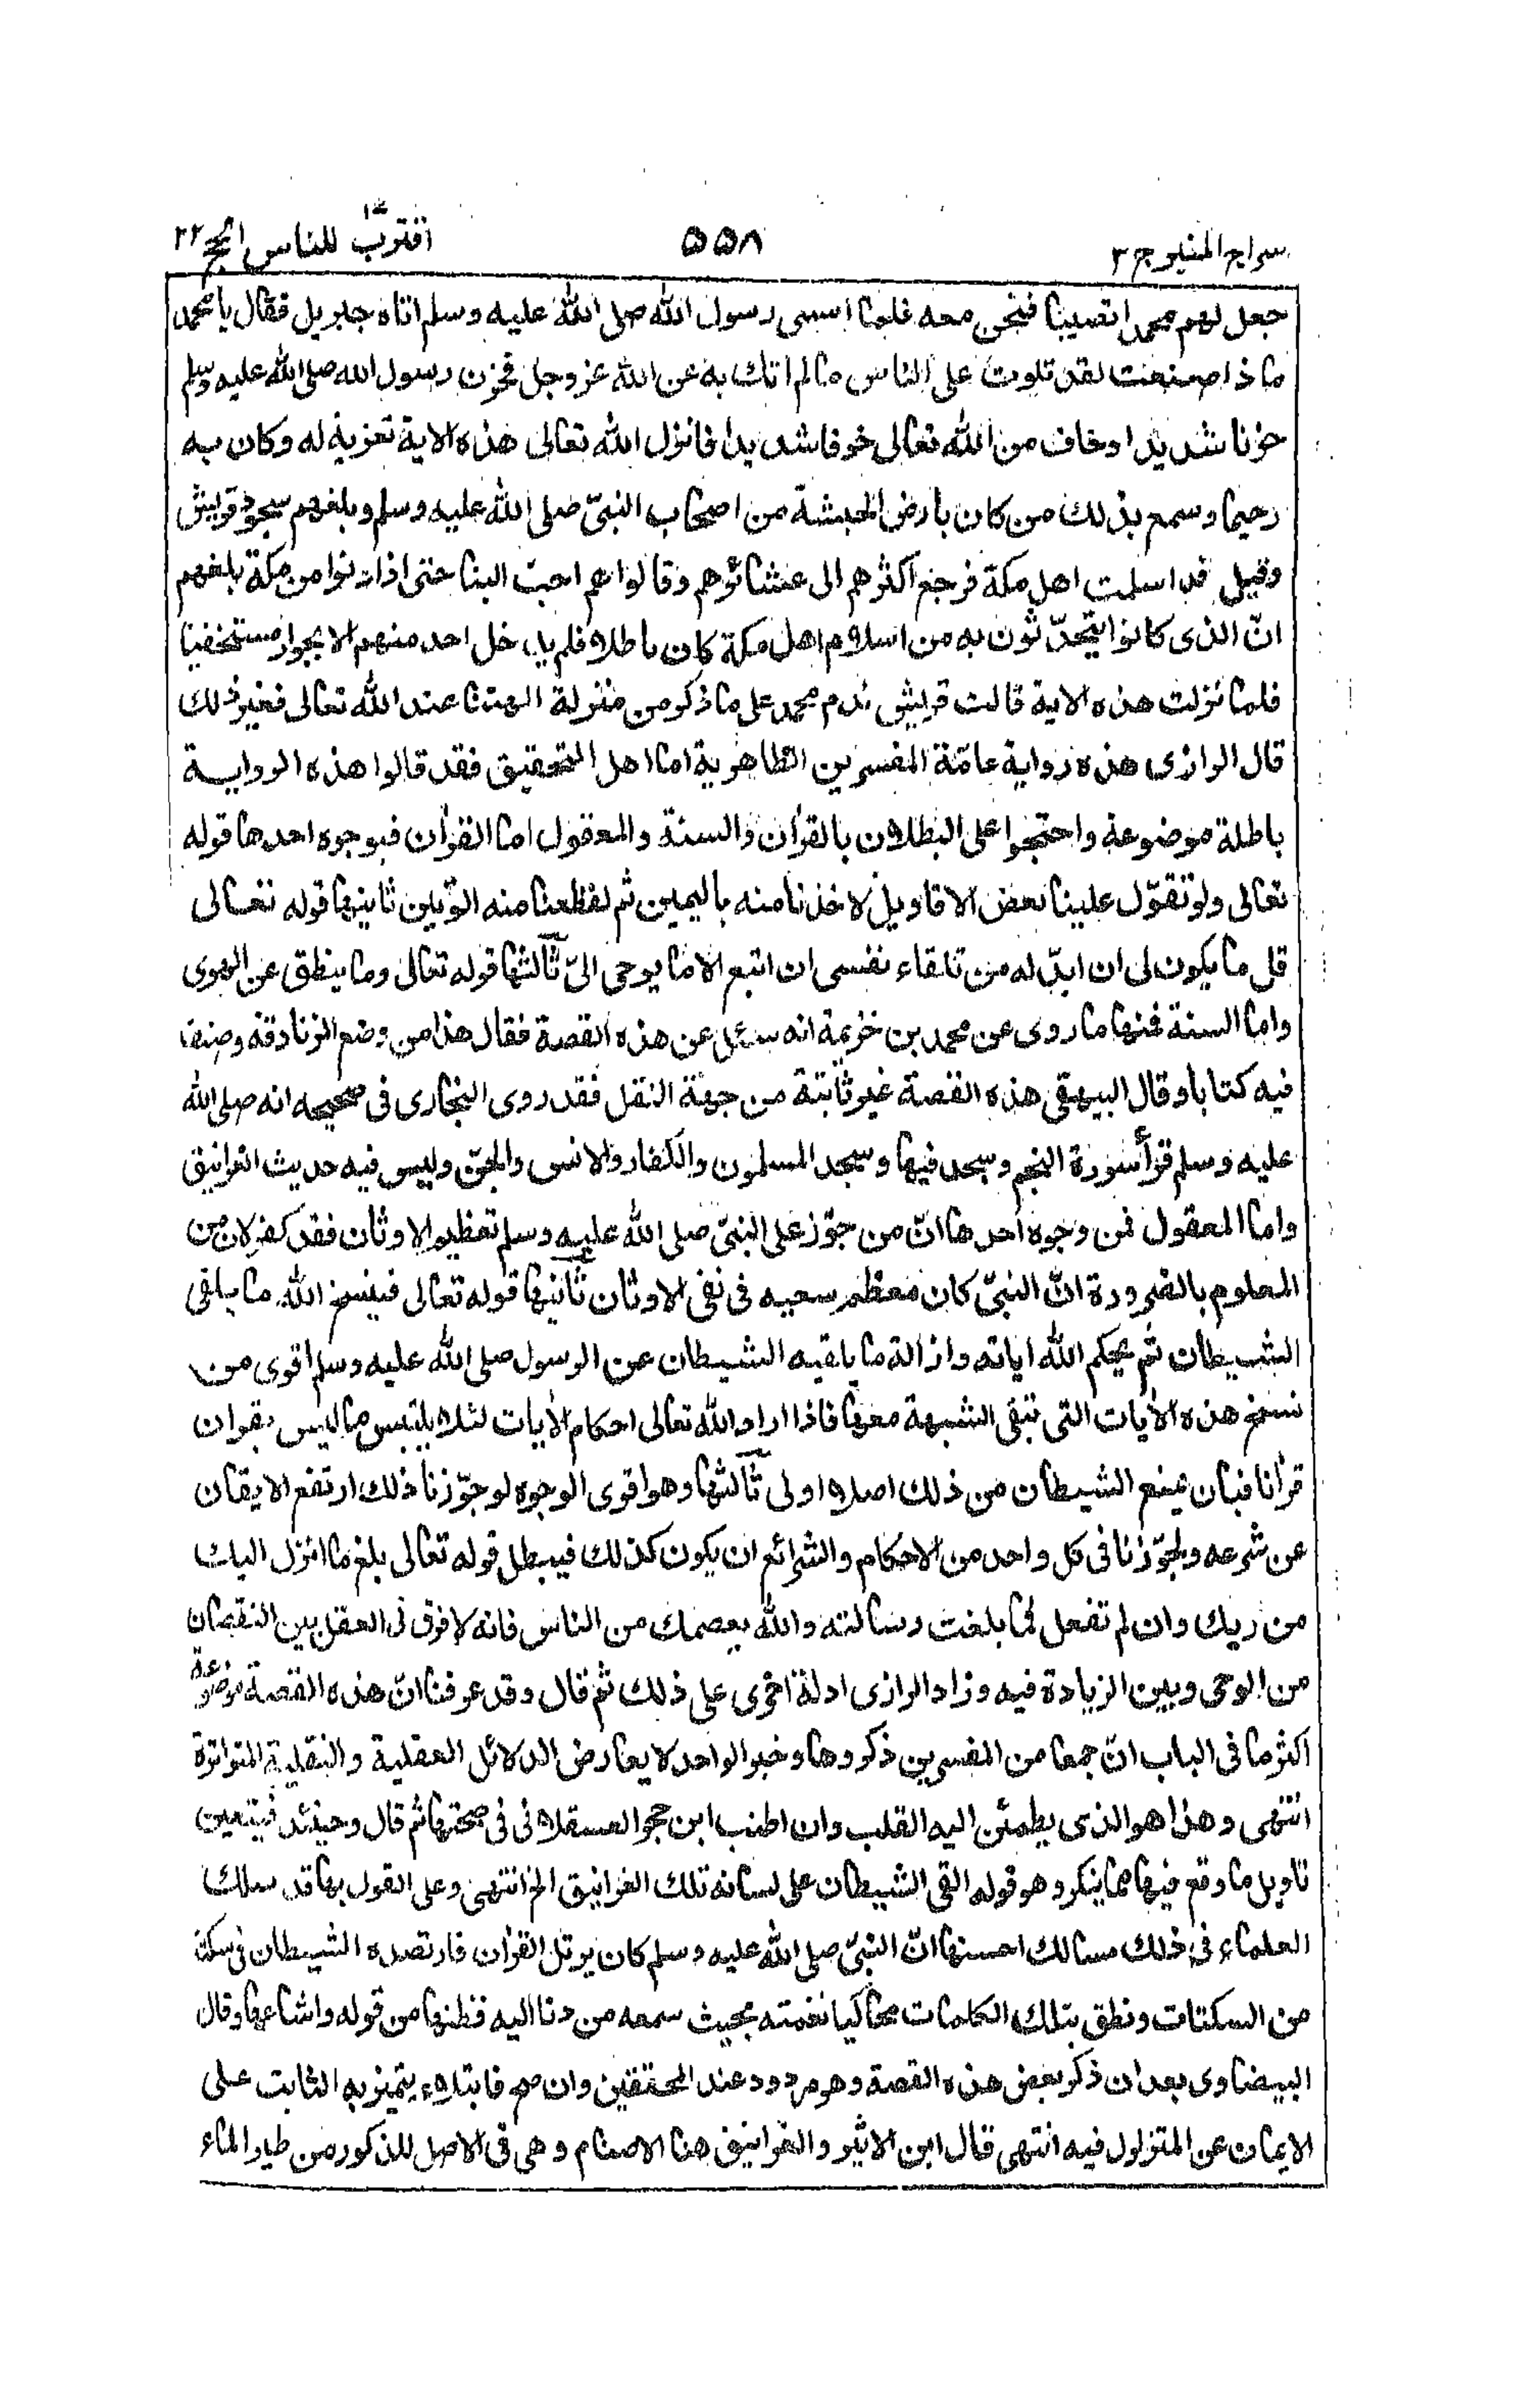 سراج المنير ج ٣
٥٥٨
اقترب للناس الحج ٢٢
جعل لهم محمد انصيبا فنحن معه فلما امسى رسول الله صلى الله عليه وسلم اتاه جبريل فقال يا محمد
ما ذا صنعت لقد تلوت على الناس ما لم اتك به عن الله عز وجل فحزن رسول الله صلى الله عليه وسلم
حزنا شديدا وخاف من الله تعالى خوفا شديدا فانزل الله تعالى هذه الاية تعزية له وكان به
رحيما وسمع بذلك من كان بارض الحبشة من اصحاب النبىّ صلى الله عليه وسلم وبلغهم سجود قريش
وقيل قد اسلمت اهل مكة فرجع اكثرهم الى عشائرهم وقالوا هم احبّ الينا حتى اذا دنوا من مكة بلغهم
انّ الذى كانوا يتحدّثون به من اسلام اهل مكة كان باطلا فلم يدخل احد منهم الا بجوار مستخفيا
فلما نزلت هذه الاية قالت قريش ندم محمد على ما ذكر من منزلة الهتنا عند الله تعالى فغير ذلك
قال الرازى هذه رواية عامّة المفسرين الظاهرية اما اهل التحقيق فقد قالوا هذه الرواية
باطلة موضوعة واحتجوا على البطلان بالقرأن والسنة والمعقول اما القرأن فبوجوه احدها قوله
تعالى ولو تقوّل علينا بعض الاقاويل لاخذنا منه باليمين ثم لقطعنا منه الوتين ثانيها قوله تعالى
قل ما يكون لى ان ابدّله من تلقاء نفسى ان اتبع الا ما يوحى الىّ ثالثها قوله تعالى وما ينطق عن الهوى
واما السنة فمنها ما روى عن محمد بن خزيمة انه سئل عن هذه القصة فقال هذا من وضع الزنادقة وصنف
فيه كتابا وقال البيهقى هذه القصة غير ثابتة من جهة النقل فقد روى البخارى فى صحيحه انه صلى الله
عليه وسلم قرأ سورة النجم وسجد فيها وسجد المسلمون والكفار والانس والجنّ وليس فيه حديث الغرانيق
واما المعقول فمن وجوه احدها انّ من جوّز على النبىّ صلى الله عليه وسلم تعظيم الاوثان فقد كفر لان من
المعلوم بالضرورة انّ النبىّ كان معظم سعيه فى نفى الاوثان ثانيها قوله تعالى فينسخ الله ما يلقى
الشيطان ثم يحكم الله اياته وازالة ما يلقيه الشيطان عن الرسول صلى الله عليه وسلم اقوى من
نسخ هذه الأيات التى تبقى الشبهة معها فاذا اراد الله تعالى احكام الأيات لئلا يلتبس ما ليس بقران
قرانا فبان يمنع الشيطان من ذلك اصلا اولى ثالثها وهو اقوى الوجوه لو جوّزنا ذلك ارتفع الايقان
عن شرعه ولجوّزنا فى كل واحد من الاحكام والشرائع ان يكون كذلك فيبطل قوله تعالى بلغ ما انزل اليك
من ربك وان لم تفعل فما بلغت رسالته والله يعصمك من الناس فانه لا فرق فى العقل بين النقصان
من الوحى وبين الزيادة فيه وزاد الرازى ادلة اخرى على ذلك ثم قال وقد عرفنا انّ هذه القصة موضوعة
اكثر ما فى الباب انّ جمعا من المفسرين ذكروها وخبر الواحد لا يعارض الدلائل العقلية والنقلية المتواترة
انتهى وهذا هو الذى يطمئن اليه القلب وان اطنب ابن حجر العسقلانى فى صحتها ثم قال وحينئذ فيتعين
تاويل ما وقع فيها مما ينكر وهو قوله القى الشيطان على لسانه تلك الغرانيق الخ انتهى وعلى القول بها قد سلك
العلماء فى ذلك مسالك احسنها انّ النبىّ صلى الله عليه وسلم كان يرتل القرأن فارتصده الشيطان فى سكتة
من السكتات ونطق بتلك الكلمات محاكيا نغمته بحيث سمعه من دنا اليه فظنها من قوله واشاعها وقال
البيضاوى بعد ان ذكر بعض هذه القصة وهو مردود عند المحققين وان صح فابتلاء يتميز به الثابت على
الايمان عن المتزلزل فيه انتهى قال ابن الاثير والغرانيق هنا الاصنام وهى فى الاصل للذكور من طير الماء